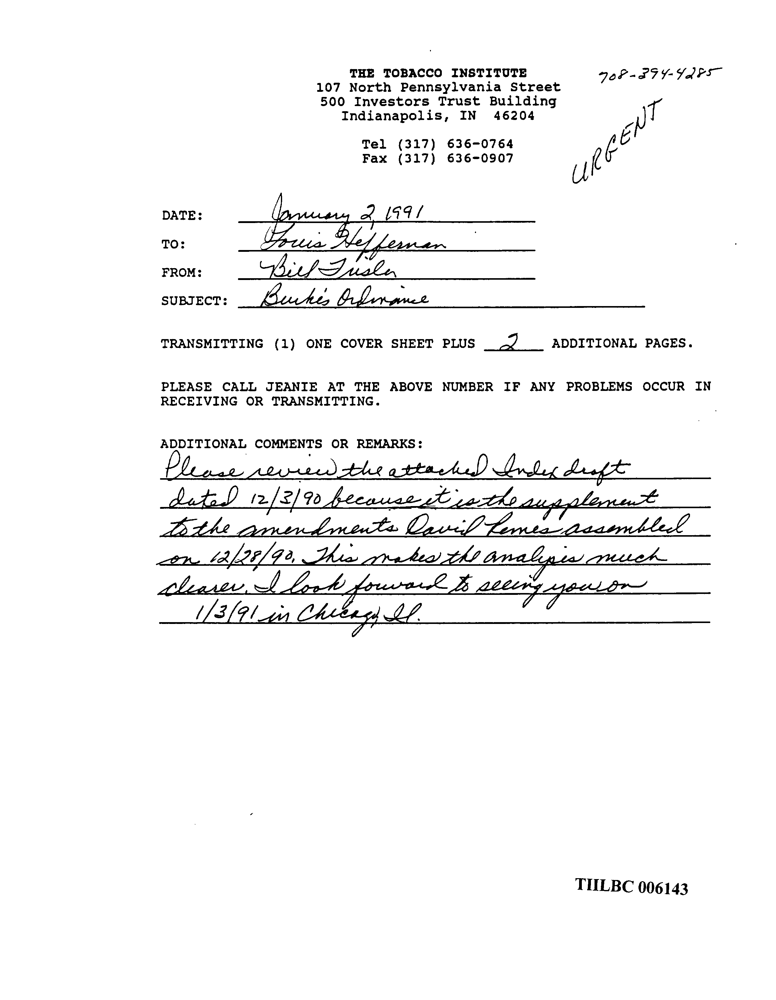 THE TOBACCO INSTITUTE
107 North Pennsylvania Street
500 Investors Trust Building
Indianapolis, IN 46204
Tel (317) 636-0764
Fax (317) 636-0907
708-394-4285
URGENT
DATE: January 2, 1991
TO: Louis Heffernan
FROM: Bill Trisler
SUBJECT: Burke's Ordinance
TRANSMITTING (1) ONE COVER SHEET PLUS 2 ADDITIONAL PAGES.
PLEASE CALL JEANIE AT THE ABOVE NUMBER IF ANY PROBLEMS OCCUR IN
RECEIVING OR TRANSMITTING.
ADDITIONAL COMMENTS OR REMARKS:
Please review the attached Index draft
dated 12/3/90 because it is the supplement
to the amendments David Remes assembled
on 12/28/90. This makes the analysis much
clearer. I look forward to seeing you on
1/3/91 in Chicago, Il.
TIILBC 006143